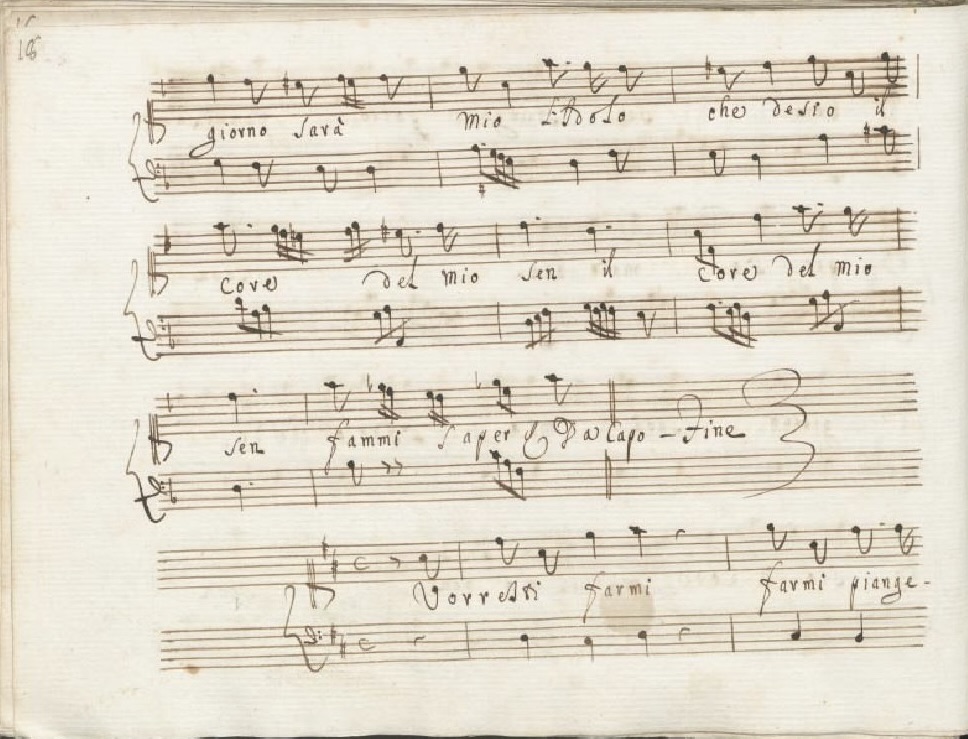 giorno sarà mio L'Idolo che desio il
core del mio sen il core del mio
sen fammi saper &c Da Capo - Fine
Vorresti farmi farmi piange-